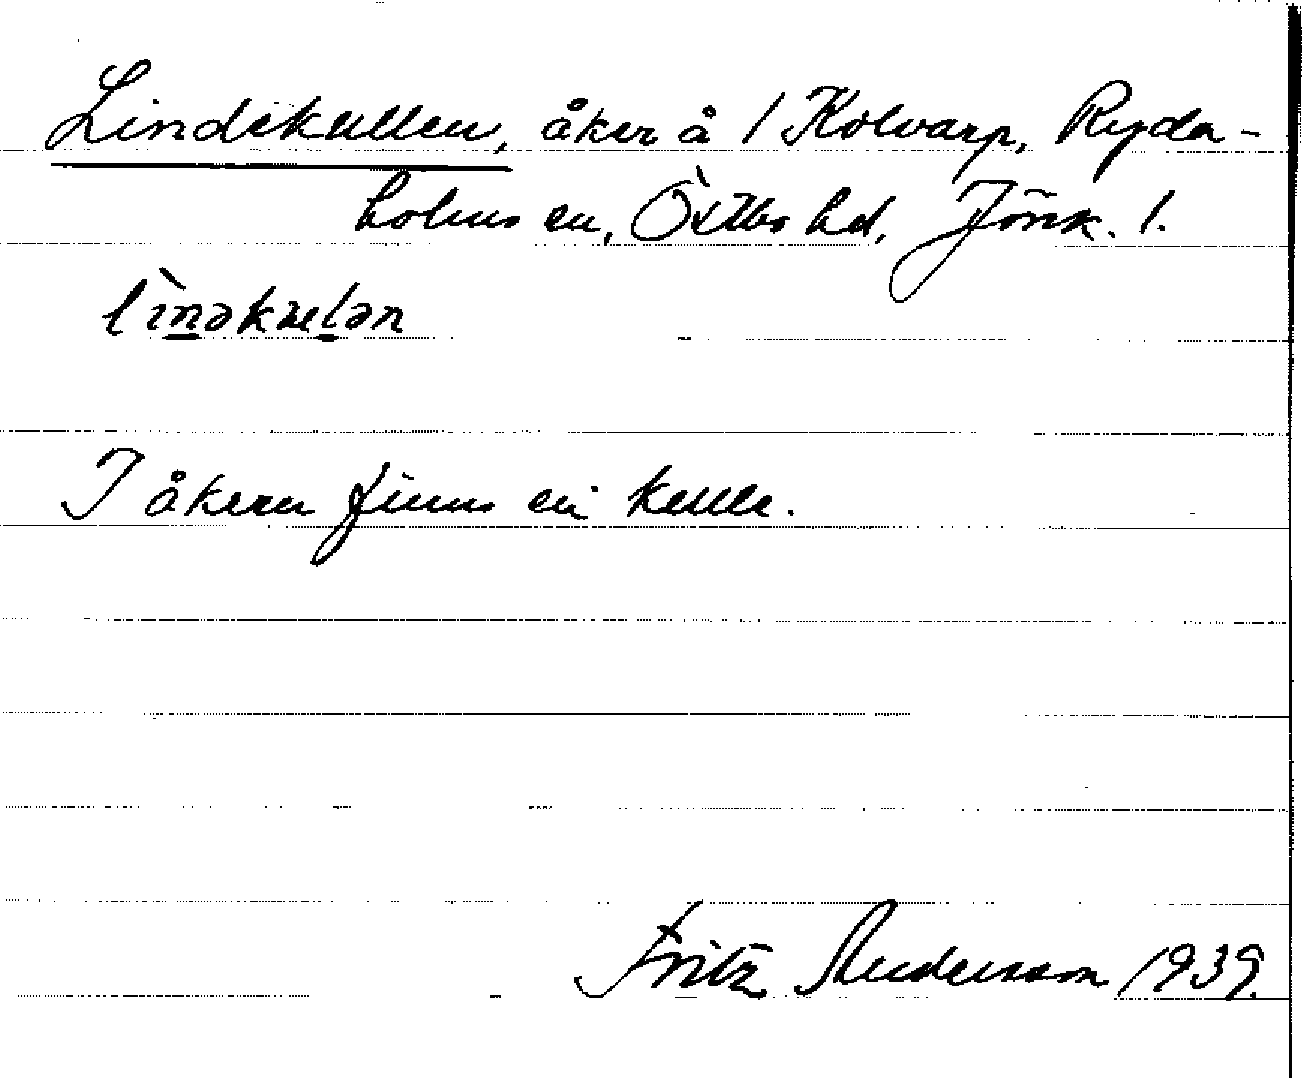 Lindekullen, åker å 1 Kolvarp, Ryda-
holms sn, Östbo hd, Jönk. l.
lìnəkulən
I åkern finns en kulle.
Fritz Andersson 1939.